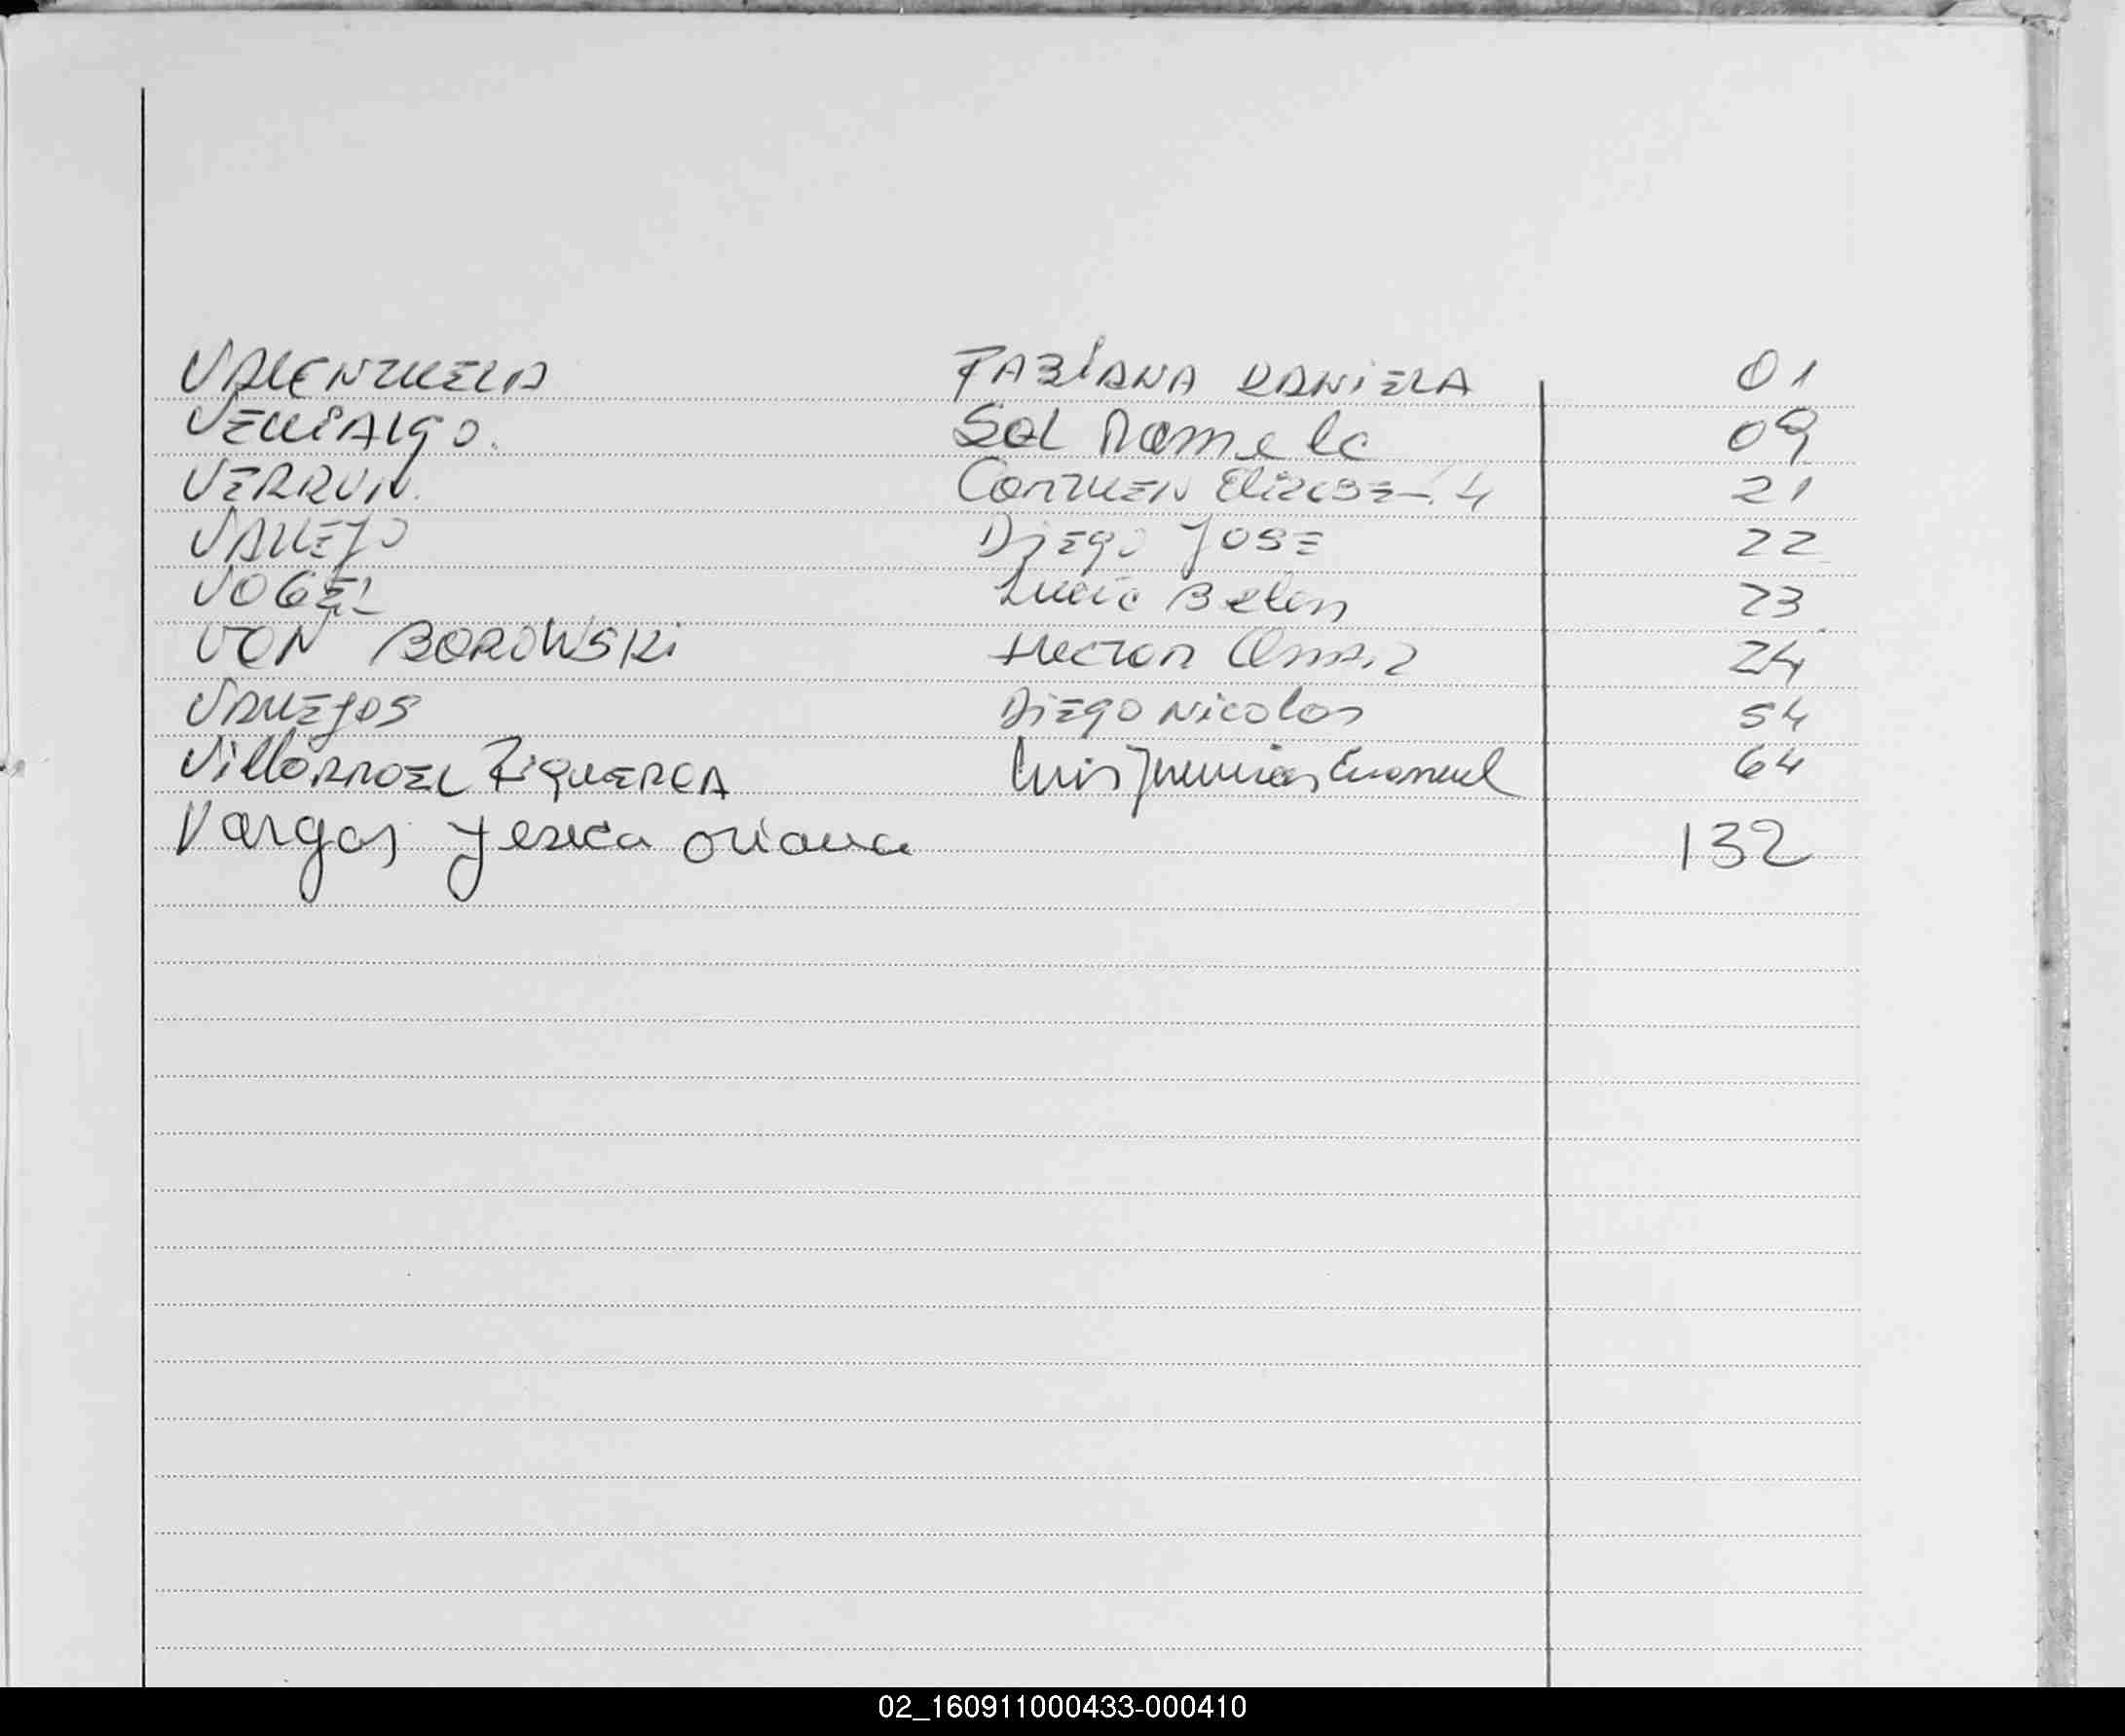 VALENZUELA FABIANA DANIELA 01
VENIALGO. SOL Pamela 09
VERRUN. CARMEN 21
VALLEJO DIEGO JOSE 22
VOGEL Lucia Belen 23
VON BOROWSKI HECTOR OMAR 24
VALLEJOS DIEGO Nicolas 54
VillARROEL FIGUEROA Luis Jeremias Emanuel 64
Vargas Yesica Oriana 132
02_160911000433-000410